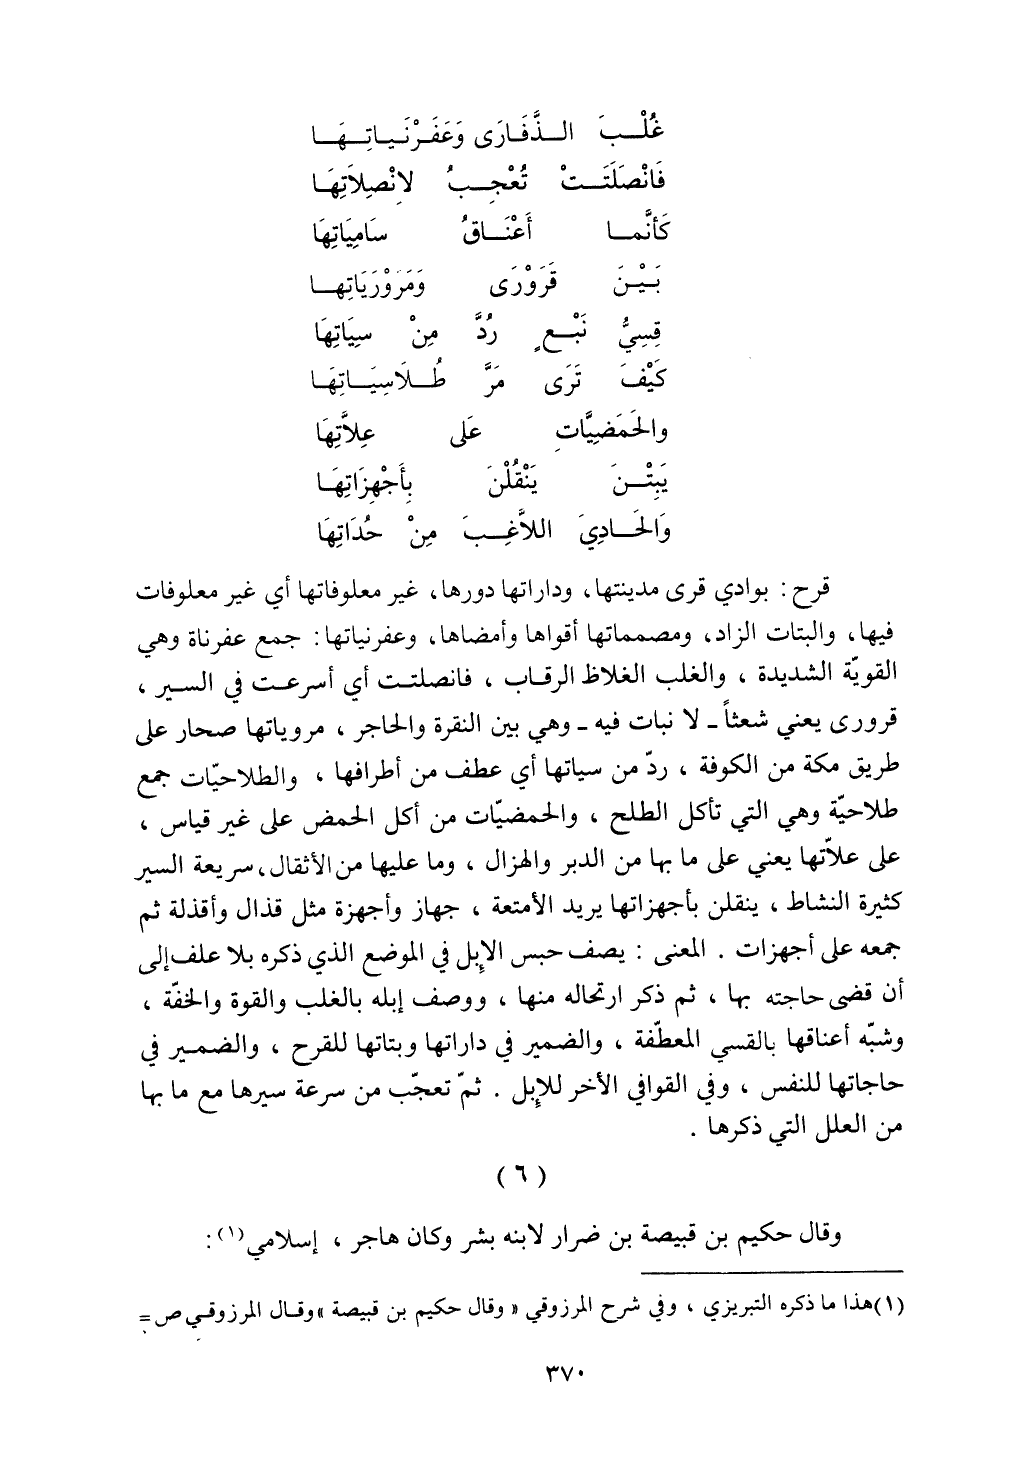 غُلْبَ الذَّفَارَى وَعَفَرْنَيَاتِهَا
فَانْصَلَتَتْ تُعْجِبُ لانْصِلاَتِهَا
كَأنَّما أَعْنَاقُ سَامِيَاتِهَا
بَيْنَ قَرَوْرَى وَمَرَوْرَيَاتِهَا
قِسِيُّ نَبْعٍ رُدَّ مِنْ سِيَاتِهَا
كَيْفَ تَرَى مَرَّ طُلاَسِيَاتِهَا
والحَمَضِيَّاتِ عَلَى عِلاَّتِهَا
يَبِتْنَ يَنْقُلْنَ بِأَجْهِزَاتِهَا
وَالحَادِيَ اللاَّغِبَ مِنْ حُدَاتِهَا
قرح : بوادي قرى مدينتها، وداراتها دورها، غير معلوفاتها أي غير معلوفات
فيها، والبتات الزاد، ومصمماتها أقواها وأمضاها، وعفرنياتها : جمع عفرناة وهي
القويّة الشديدة ، والغلب الغلاظ الرقاب ، فانصلتت أي أسرعت في السير ،
قرورى يعني شعثاً ـ لا نبات فيه ـ وهي بين النقرة والحاجر ، مروياتها صحار على
طريق مكة من الكوفة ، ردّ من سياتها أي عطف من أطرافها ، والطلاحيّات جمع
طلاحيّة وهي التي تأكل الطلح ، والحمضيّات من أكل الحمض على غير قياس ،
على علاّتها يعني على ما بها من الدبر والهزال ، وما عليها من الأثقال، سريعة السير
كثيرة النشاط ، ينقلن بأجهزاتها يريد الأمتعة ، جهاز وأجهزة مثل قذال وأقذلة ثم
جمعه على أجهزات . المعنى : يصف حبس الإبل في الموضع الذي ذكره بلا علف إلى
أن قضى حاجته بها ، ثم ذكر ارتحاله منها ، ووصف إبله بالغلب والقوة والخفّة ،
وشبّه أعناقها بالقسي المعطّفة ، والضمير في داراتها وبتاتها للقرح ، والضمير في
حاجاتها للنفس ، وفي القوافي الأخر للإبل . ثمّ تعجّب من سرعة سيرها مع ما بها
من العلل التي ذكرها .
(٦)
وقال حكيم بن قبيصة بن ضرار لابنه بشر وكان هاجر ، إسلامي(١) :
(١) هذا ما ذكره التبريزي ، وفي شرح المرزوقي « وقال حكيم بن قبيصة » وقال المرزوقي ص =
٣٧٠